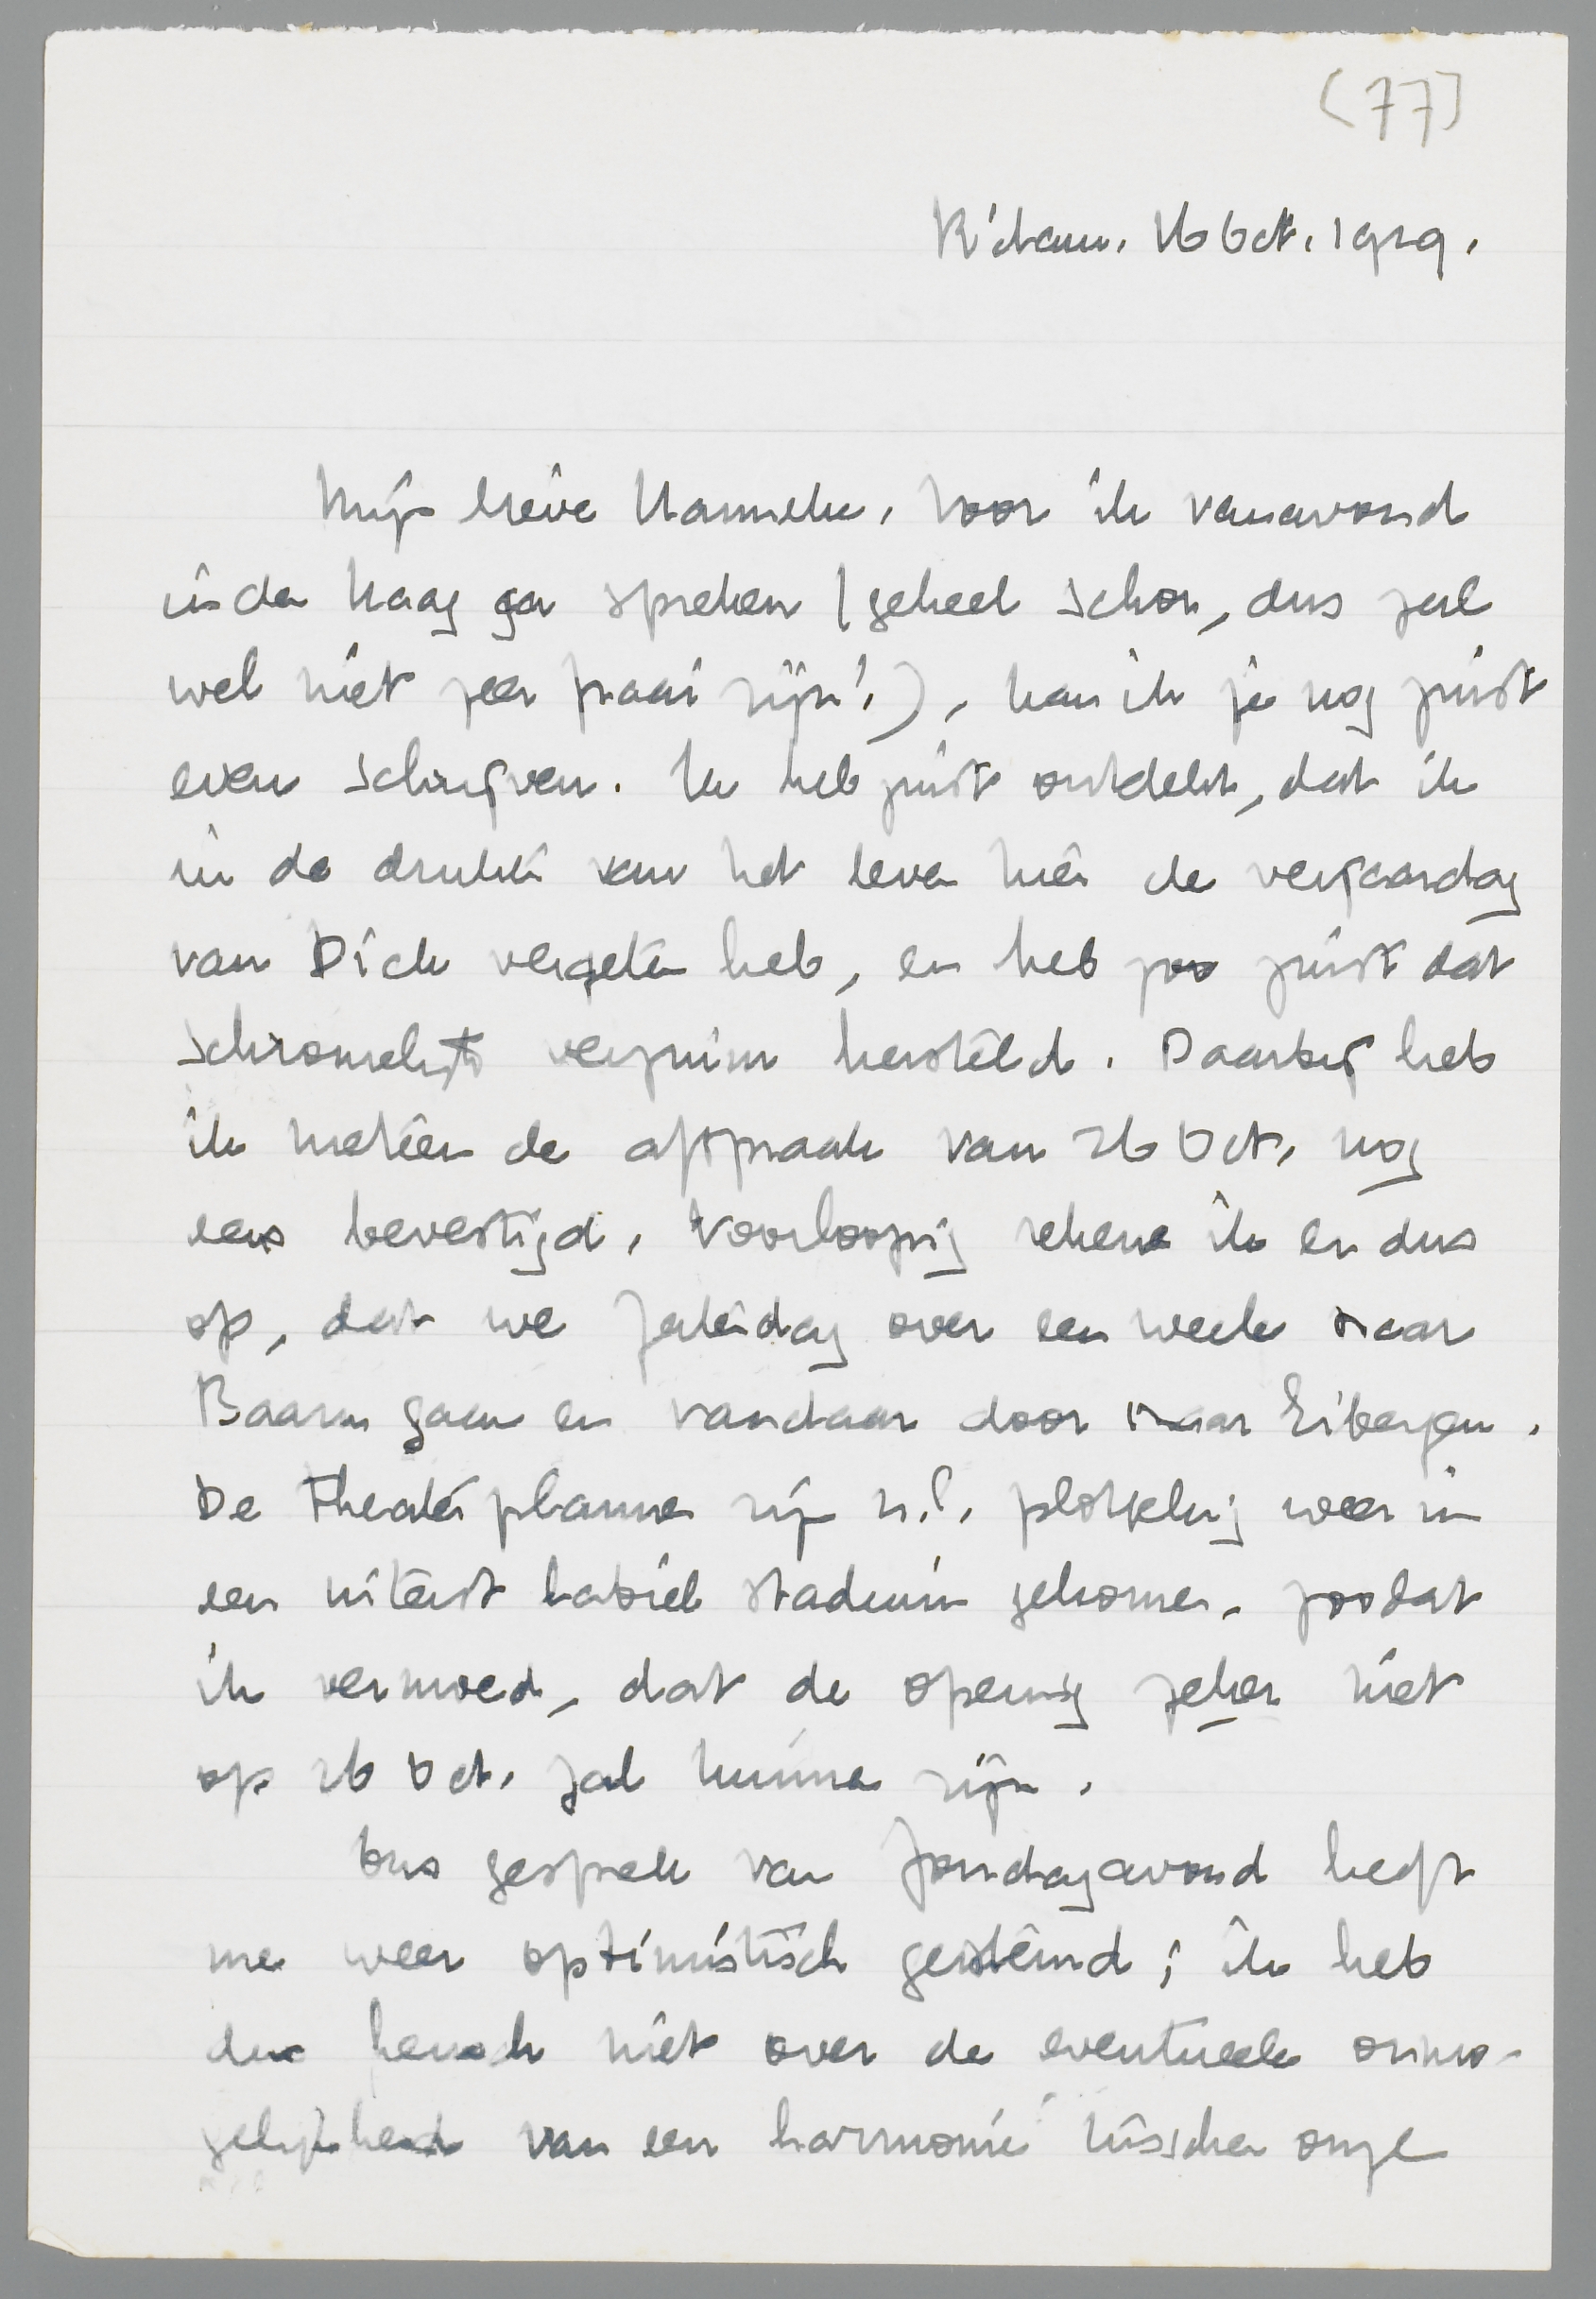 (77)
R'dam. 16 Oct. 1929.
Mijn lieve Hanneke, Voor ik vanavond
in den Haag ga spreken (geheel schor, dus zal
wel niet zeer fraai zijn!), kan ik je nog juist
even schrijven. Ik heb juist ontdekt, dat ik
in de drukte van het leven hier de verjaardag
van Dick vergeten heb, en heb zoo juist dat
schromelijk verzuim hersteld. Daarbij heb
ik meteen de afspraak van 26 Oct. nog
eens bevestigd. Voorloopig reken ik er dus
op, dat we Zaterdag over een week naar
Baarn gaan en vandaar door naar Eibergen.
De Theaterplannen zijn n.l. plotseling weer in
een uiterst labiel stadium gekomen, zoodat
ik vermoed, dat de opening zeker niet
op 26 Oct. zal kunnen zijn.
Ons gesprek van Zondagavond heeft
me weer optimistisch gestemd; ik heb
dus heusch niet over de eventueele onmo-
gelijkheid van een harmonie tusschen onze